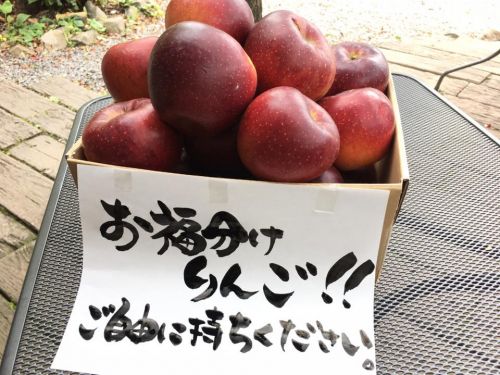 お福分け
りんご!!
ご自由に持ちください。